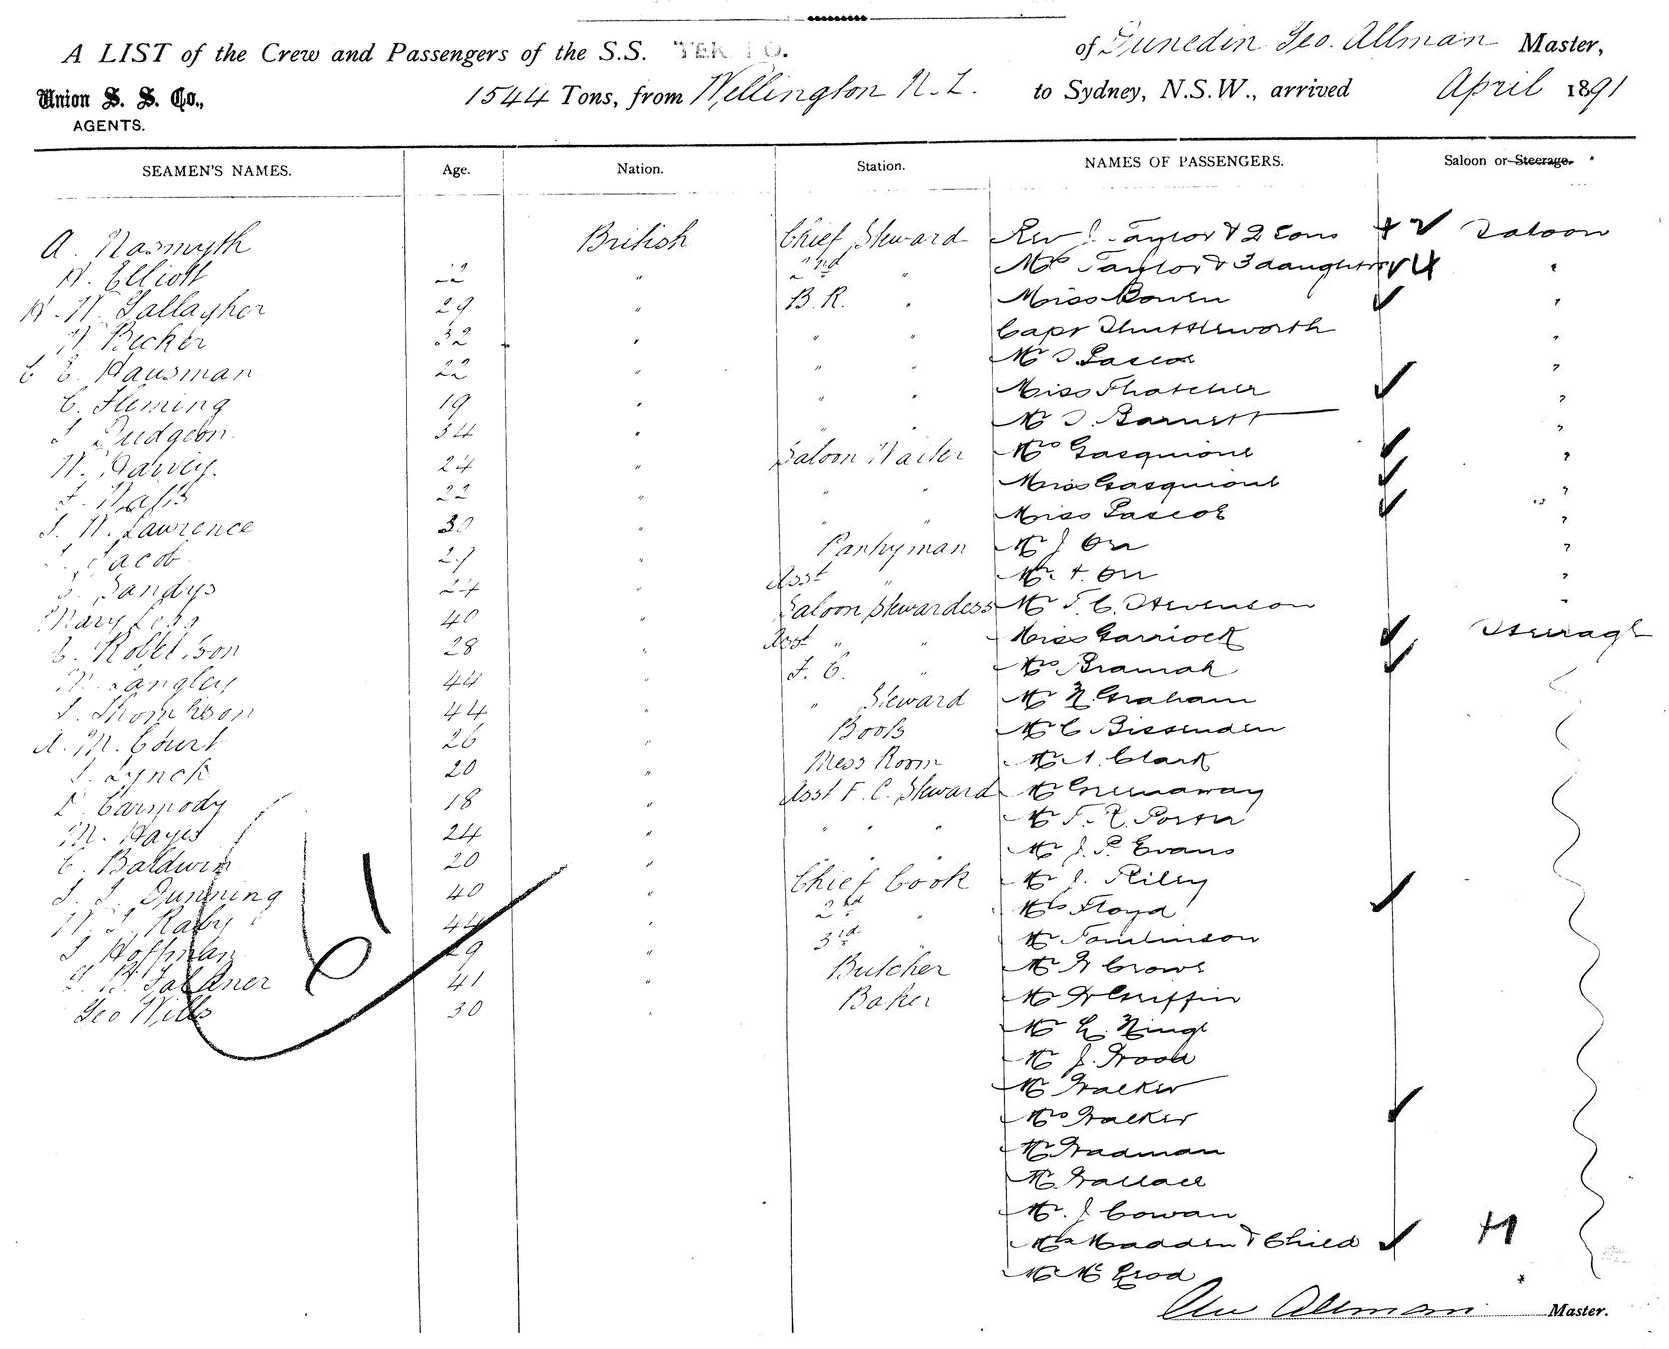 A LIST of the Crew and Passengers of the S.S. TEKAPO. of Dunedin Geo. Allman Master,
Union S. S. Co., 1544 Tons, from Wellington N. Z. to Sydney, N.S.W., arrived April 1891
AGENTS.
SEAMEN'S NAMES. Age. Nation. Station. NAMES OF PASSENGERS. Saloon or Steerage.
A. Nasmyth British Chief Steward Rev J. Taylor & 2 Sons Saloon
Elliott 22 " 2nd " Mrs Taylor & 3 daughters 4 "
H. W. Gallagher 29 " B. R. " Miss Bowen "
Becker 32 " " " Capt Shuttleworth "
C E. Hausman 22 " " " Mr Pascoe "
C. Fleming 19 " " " Miss Thatcher "
J Dudgeon 34 " " " Mr Barnett "
W. Harvey. 24 " Saloon Waiter Mrs Gasquione "
22 " " " Miss Gasquione "
J. W. Lawrence 30 " " " Miss Pascoe "
Jacob 29 " Pantryman Mr J Orr "
Sandys 24 " Asst " Mr Orr "
Mary Less 40 " Saloon Stewardess Mr F. C. Stevenson "
C. Robertson 28 " Asst " " Miss Garriock Steerage
Langley 44 " F. C. " Mrs Bramah
J. Thompson 44 " " Steward Mr N. Graham
A. M. Court 26 " Boots Mr C Bissenden
J. Lynch 20 " Mess Room Mr Clark
Carmody 18 " Asst F. C. Steward Mr Greenaway
M. Hayes 24 " " " " Mr F. R. Porter
C. Baldwin 20 " " " " Mr J. P. Evans
J. J. Dunning 40 " Chief Cook Mr J. Riley
W. J. Raby 44 " 2nd " Mrs Floyd
J Hoffman 29 " 3rd " Mr Tomlinson
Faldner 41 " Butcher Mr W Crowe
Geo Wills 30 " Baker Mr W Griffin
Mr
Mr J. Wood
Mr Walker
Mrs Walker
Mr Wadman
Mr Wallace
Mr. J Cowan
Mrs Madden & Child
Mr Mc
61
Geo Allman Master.